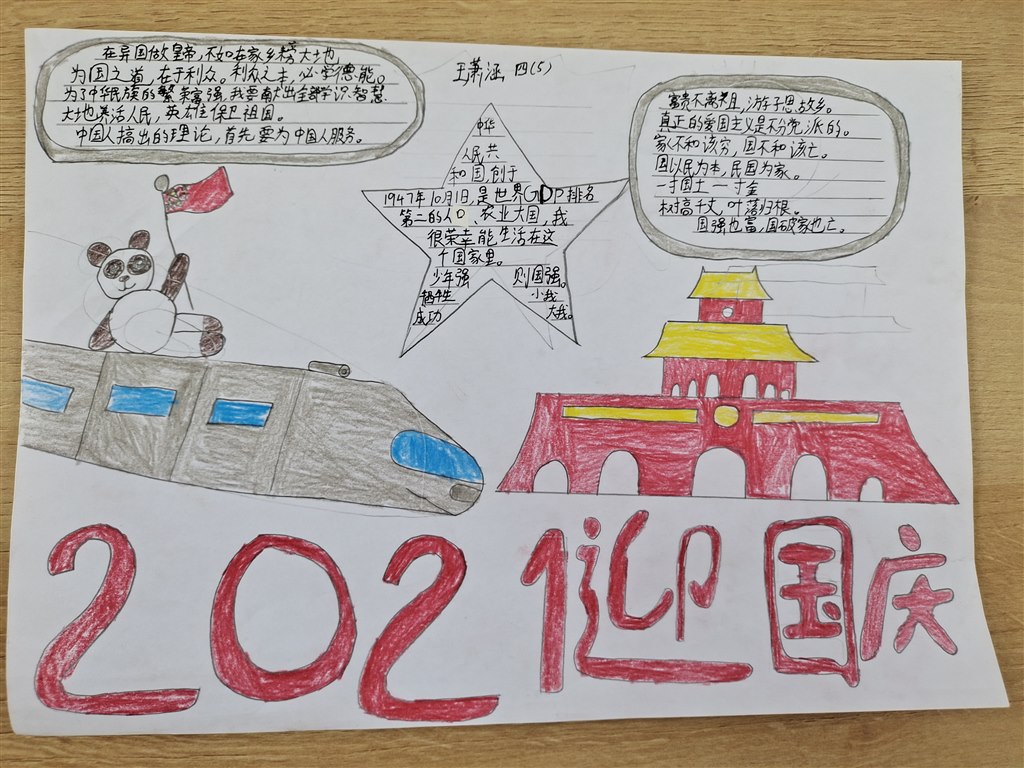 王萧涵 四(5)
在异国做皇帝,不如在家乡榜大地
为国之道,在于利众。利众之本,必学德能。
为了中华民族的繁荣富强,我要献出全部学识智慧
大地养活人民,英雄保卫祖国。
中国人搞出的理论,首先要为中国人服务。
中华
人民共
和国,创于
1947年10月1日,是世界GDP排名
第二的人口、农业大国,我
很荣幸能生活在这
个国家里。
少年强 则国强。
牺牲 小我
成功 大我。
富贵不离祖,游子思故乡。
真正的爱国主义是不分党派的。
家不和该穷,国不和该亡。
国以民为本,民国为家。
一寸国土一寸金
树搞千丈,叶落归根。
国强也富,国破家也亡。
2021迎国庆